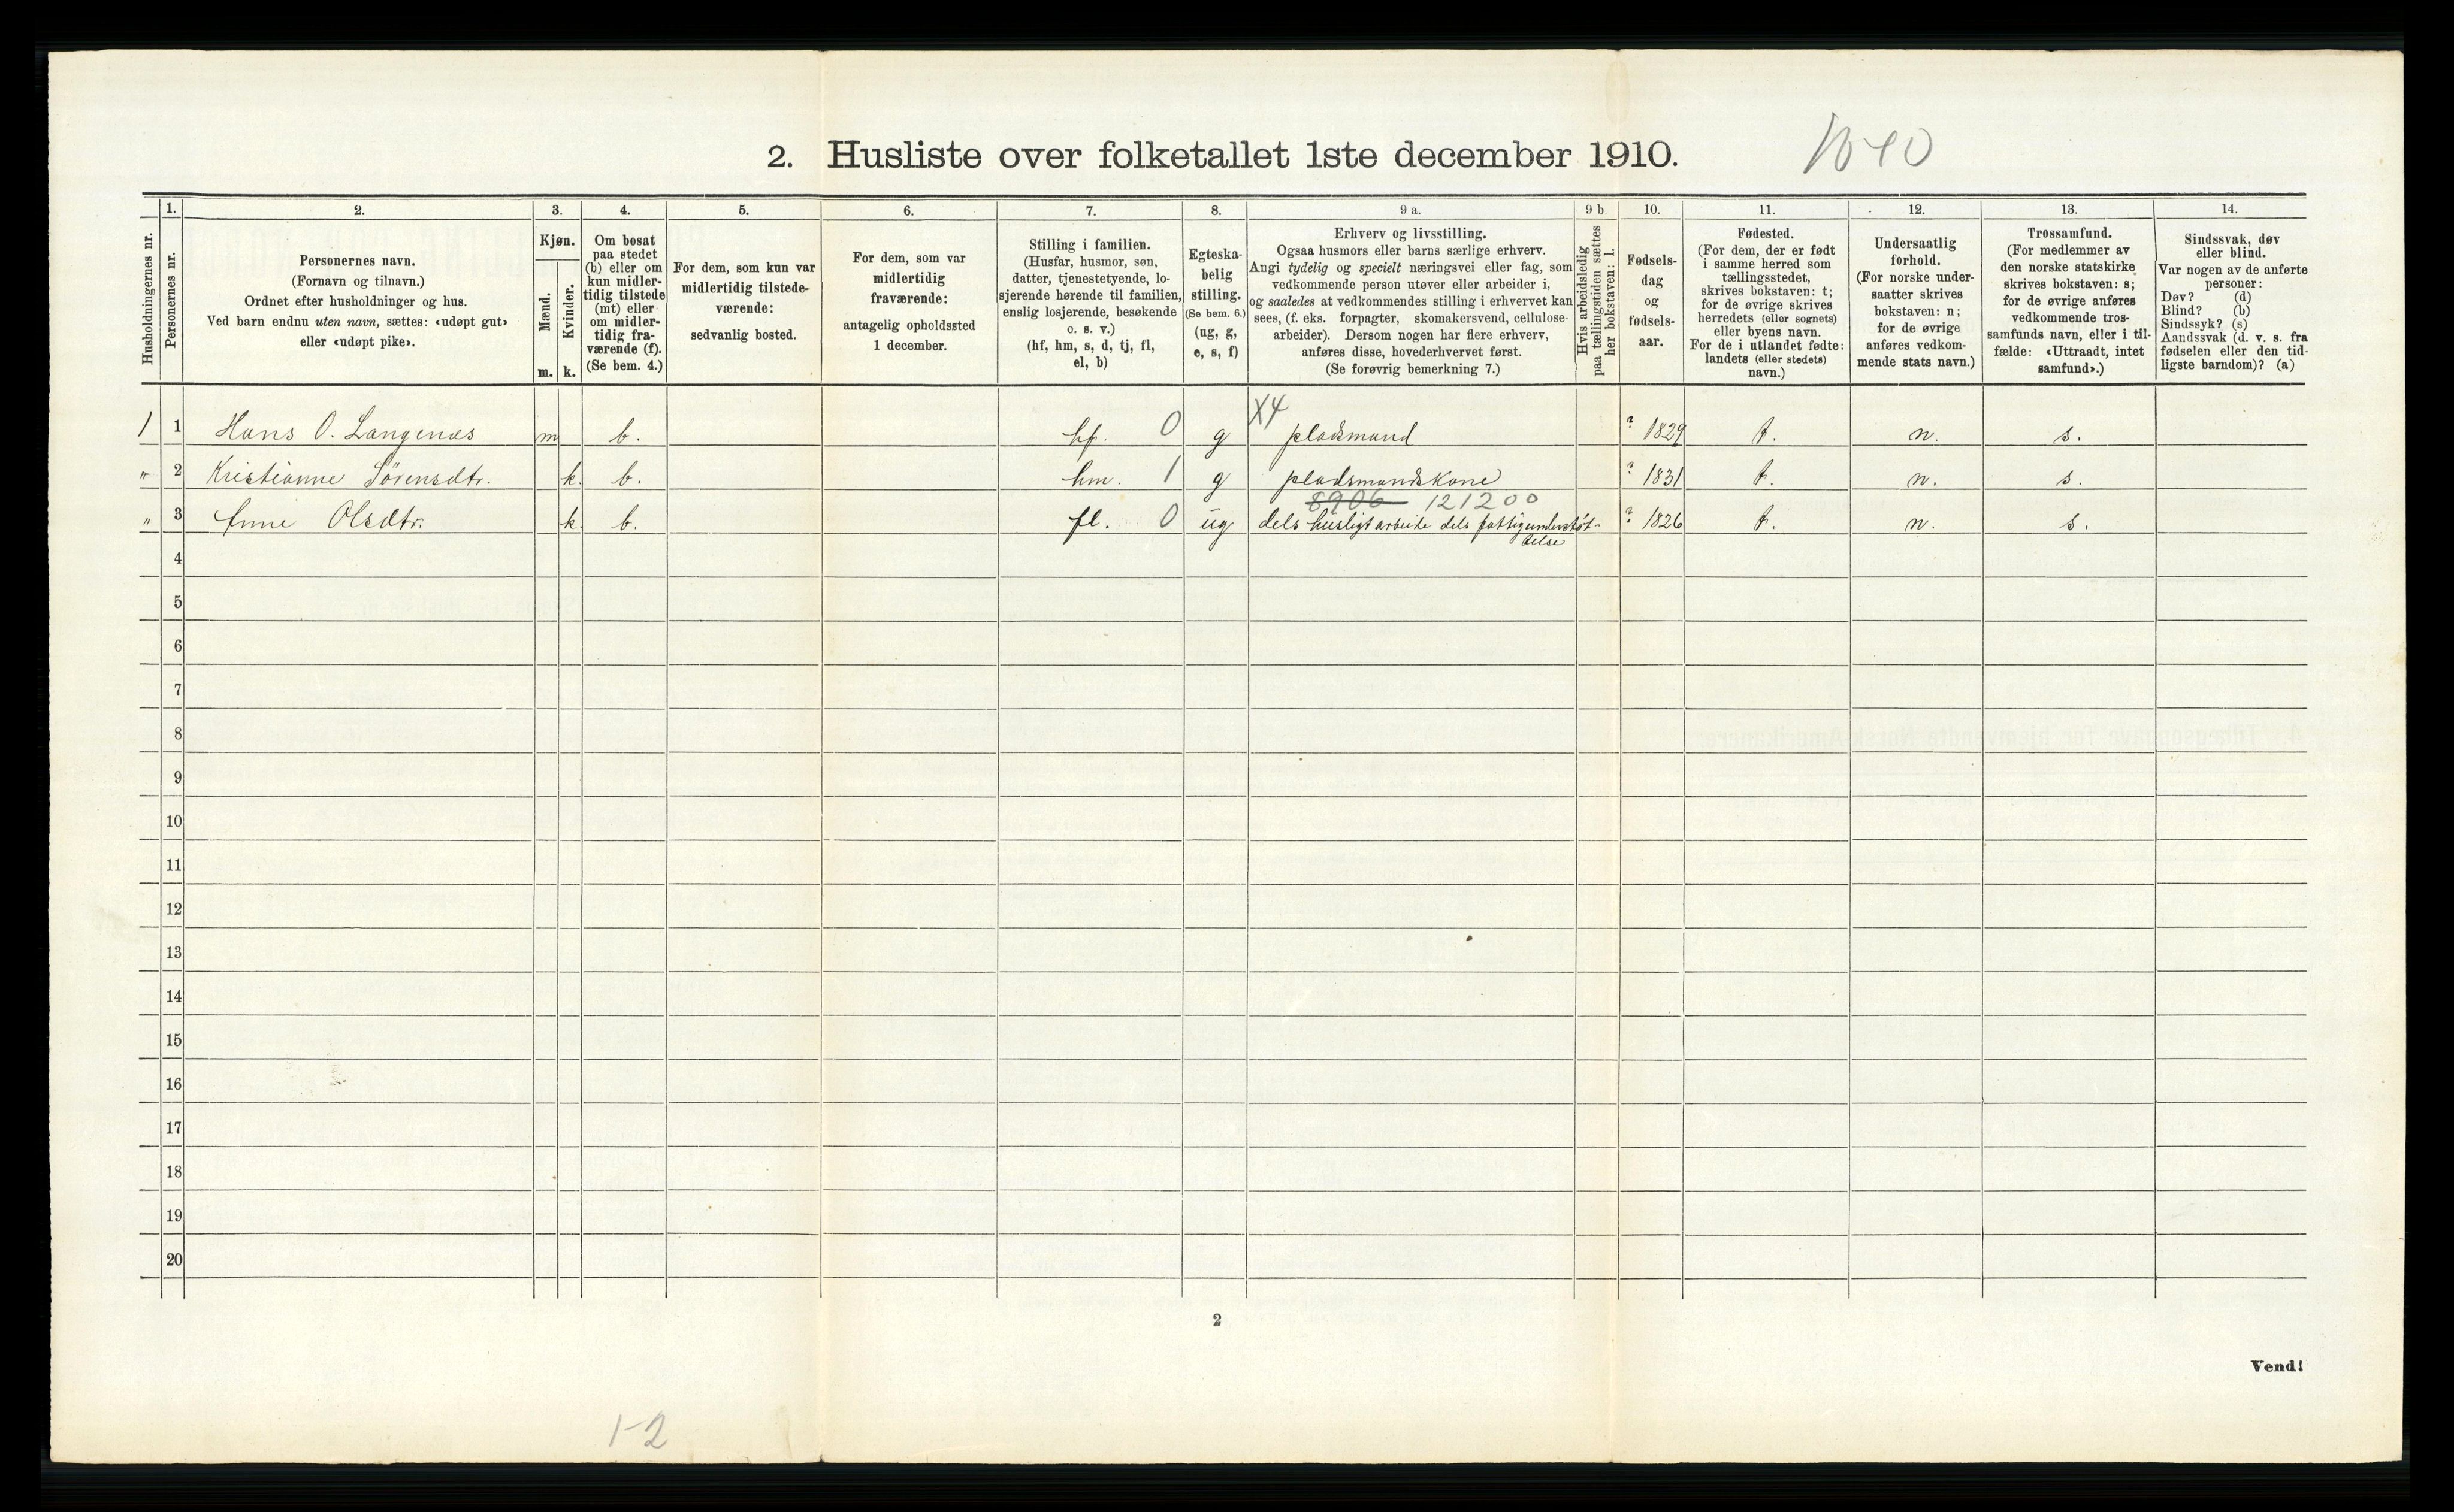 2. Husliste over folketallet 1ste december 1910.
Husholdningernes nr.
1.
Personernes nr.
2.
Personernes navn.
(Fornavn og tilnavn.)
Ordnet efter husholdninger og hus.
Ved barn endnu uten navn, sættes: «udøpt gut»
eller «udøpt pike».
3.
Kjøn.
Mænd.
Kvinder.
m. k.
4.
Om bosat
paa stedet
(b) eller om
kun midler-
tidig tilstede
(mt) eller
om midler-
tidig fra-
værende (f).
(Se bem. 4.)
5.
For dem, som kun var
midlertidig tilstede-
værende:
sedvanlig bosted.
6.
For dem, som var
midlertidig
fraværende:
antagelig opholdssted
1 december.
7.
Stilling i familien.
(Husfar, husmor, søn,
datter, tjenestetyende, lo-
sjerende hørende til familien,
enslig losjerende, besøkende
o. s. v.)
(hf, hm, s, d, tj, fl,
el, b)
8.
Egteska-
belig
stilling.
(Se bem. 6.)
(ug, g,
e, s, f)
9 a.
Erhverv og livsstilling.
Ogsaa husmors eller barns særlige erhverv.
Angi tydelig og specielt næringsvei eller fag, som
vedkommende person utøver eller arbeider i,
og saaledes at vedkommendes stilling i erhvervet kan
sees, (f. eks. forpagter, skomakersvend, cellulose-
arbeider). Dersom nogen har flere erhverv,
anføres disse, hovederhvervet først.
(Se forøvrig bemerkning 7.)
9 b.
Hvis arbeidsledig
paa tællingstiden sættes
her bokstaven: l.
10.
Fødsels-
dag
og
fødsels-
aar.
11.
Fødested.
(For dem, der er født
i samme herred som
tællingsstedet,
skrives bokstaven: t;
for de øvrige skrives
herredets (eller sognets)
eller byens navn.
For de i utlandet fødte:
landets (eller stedets)
navn.)
12.
Undersaatlig
forhold.
(For norske under-
saatter skrives
bokstaven: n;
for de øvrige
anføres vedkom-
mende stats navn.)
13.
Trossamfund.
(For medlemmer av
den norske statskirke
skrives bokstaven: s;
for de øvrige anføres
vedkommende tros-
samfunds navn, eller i til-
fælde: «Uttraadt, intet
samfund».)
14.
Sindssvak, døv
eller blind.
Var nogen av de anførte
personer:
Døv? (d)
Blind? (b)
Sindssyk? (s)
Aandssvak (d. v. s. fra
fødselen eller den tid-
ligste barndom)? (a)
X4
1 1 Hans O. Langenæs m b. hf. 0 g pladsmand ? 1829 t. n. s.
" 2 Kristianne Sørensdtr. k. b. hm. 1 g pladsmandskone ? 1831 t. n. s.
8906 121200
" 3 Anne Olsdtr. k b. fl. 0 ug dels husligt arbeide dels fattigunderstøt- ? 1826 t. n. s.
telse
4
5
6
7
8
9
10
11
12
13
14
15
16
17
18
19
20
2
Vend!
1-2